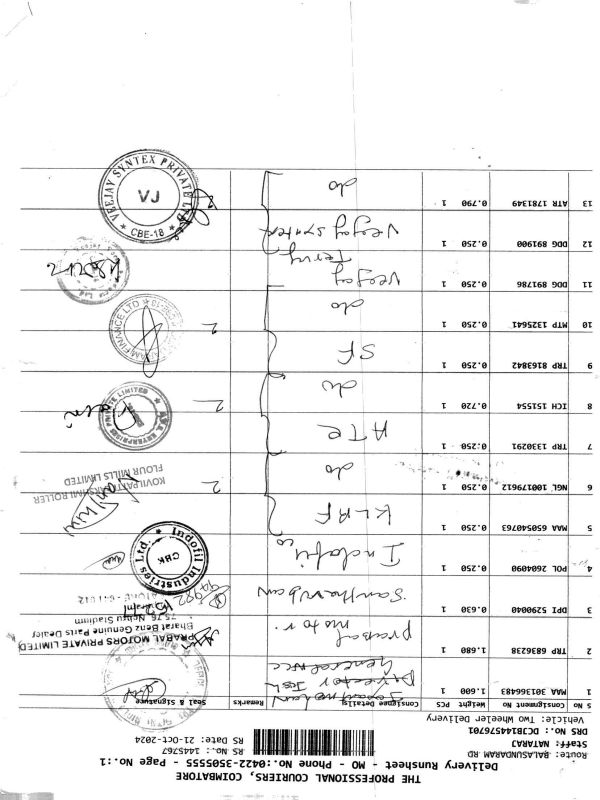 THE PROFESSIONAL COURIERS, COIMBATORE
Delivery Runsheet - MO - Phone No.:0422-3505555 - Page No.:1
Route: BALASUNDARAM RD
Staff: NATARAJ
DRS No.: DCJB144576701
Vehicle: Two Wheeler Delivery
RS No.: 1445767
RS Date: 21-Oct-2024
S No Consignment No Weight PCS Consignee Details Remarks Seal & Signature
1 MAA 301366483 1.600 1
2 TRP 6836238 1.680 1 prabal motor
PRABAL MOTORS PRIVATE LIMITED
Bharat Benz Genuine Parts Dealer
75,76, Nehru Stadium
3 DPI 5290040 0.630 1
4 POL 2604090 0.250 1 Indofil
Indofil Industries Ltd.
CBK
5 MAA 650540763 0.250 1 KLRF
6 NGL 100179612 0.250 1 do 2
KOVILPATTI LAKSHMI ROLLER
FLOUR MILLS LIMITED
7 TRP 1330291 0.250 1 ATE
8 ICH 151554 0.720 1 do 2
ENTERPRISES PRIVATE LIMITED
9 TRP 8163842 0.250 1 SF
10 MTP 1325641 0.250 1 do 2
FINANCE LTD
11 DDG 891786 0.250 1 Veejay Terry
12 DDG 891900 0.250 1 Veejay Syntex
13 ATR 1781349 0.790 1 do
VEEJAY SYNTEX PRIVATE LTD.
VJ
CBE-18